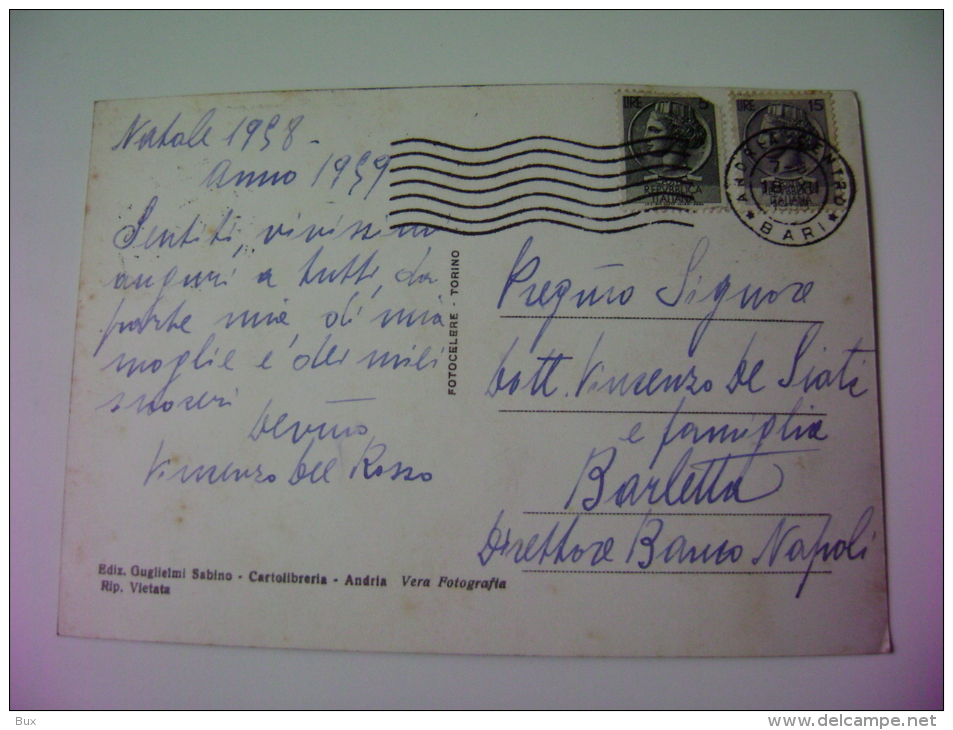 Natale 1958 -
Anno 1959
Sentiti, vivissimi
auguri, a tutti, da
parte mia, di mia
moglie e dei miei
suoceri
Dev/mo
Vincenzo Del Rosso
Ediz. Guglielmi Sabino - Cartolibreria - Andria Vera Fotografia
Rip. Vietata
FOTOCELERE - TORINO
LIRE 5
REPUBBLICA
ITALIANA
LIRE 15
ANDRIA CENTRO
18 XII
* BARI *
Preg/mo Signore
Dott. Vincenzo De
e famiglia
Barletta
Direttore Banco Napoli
Bux
www.delcampe.net